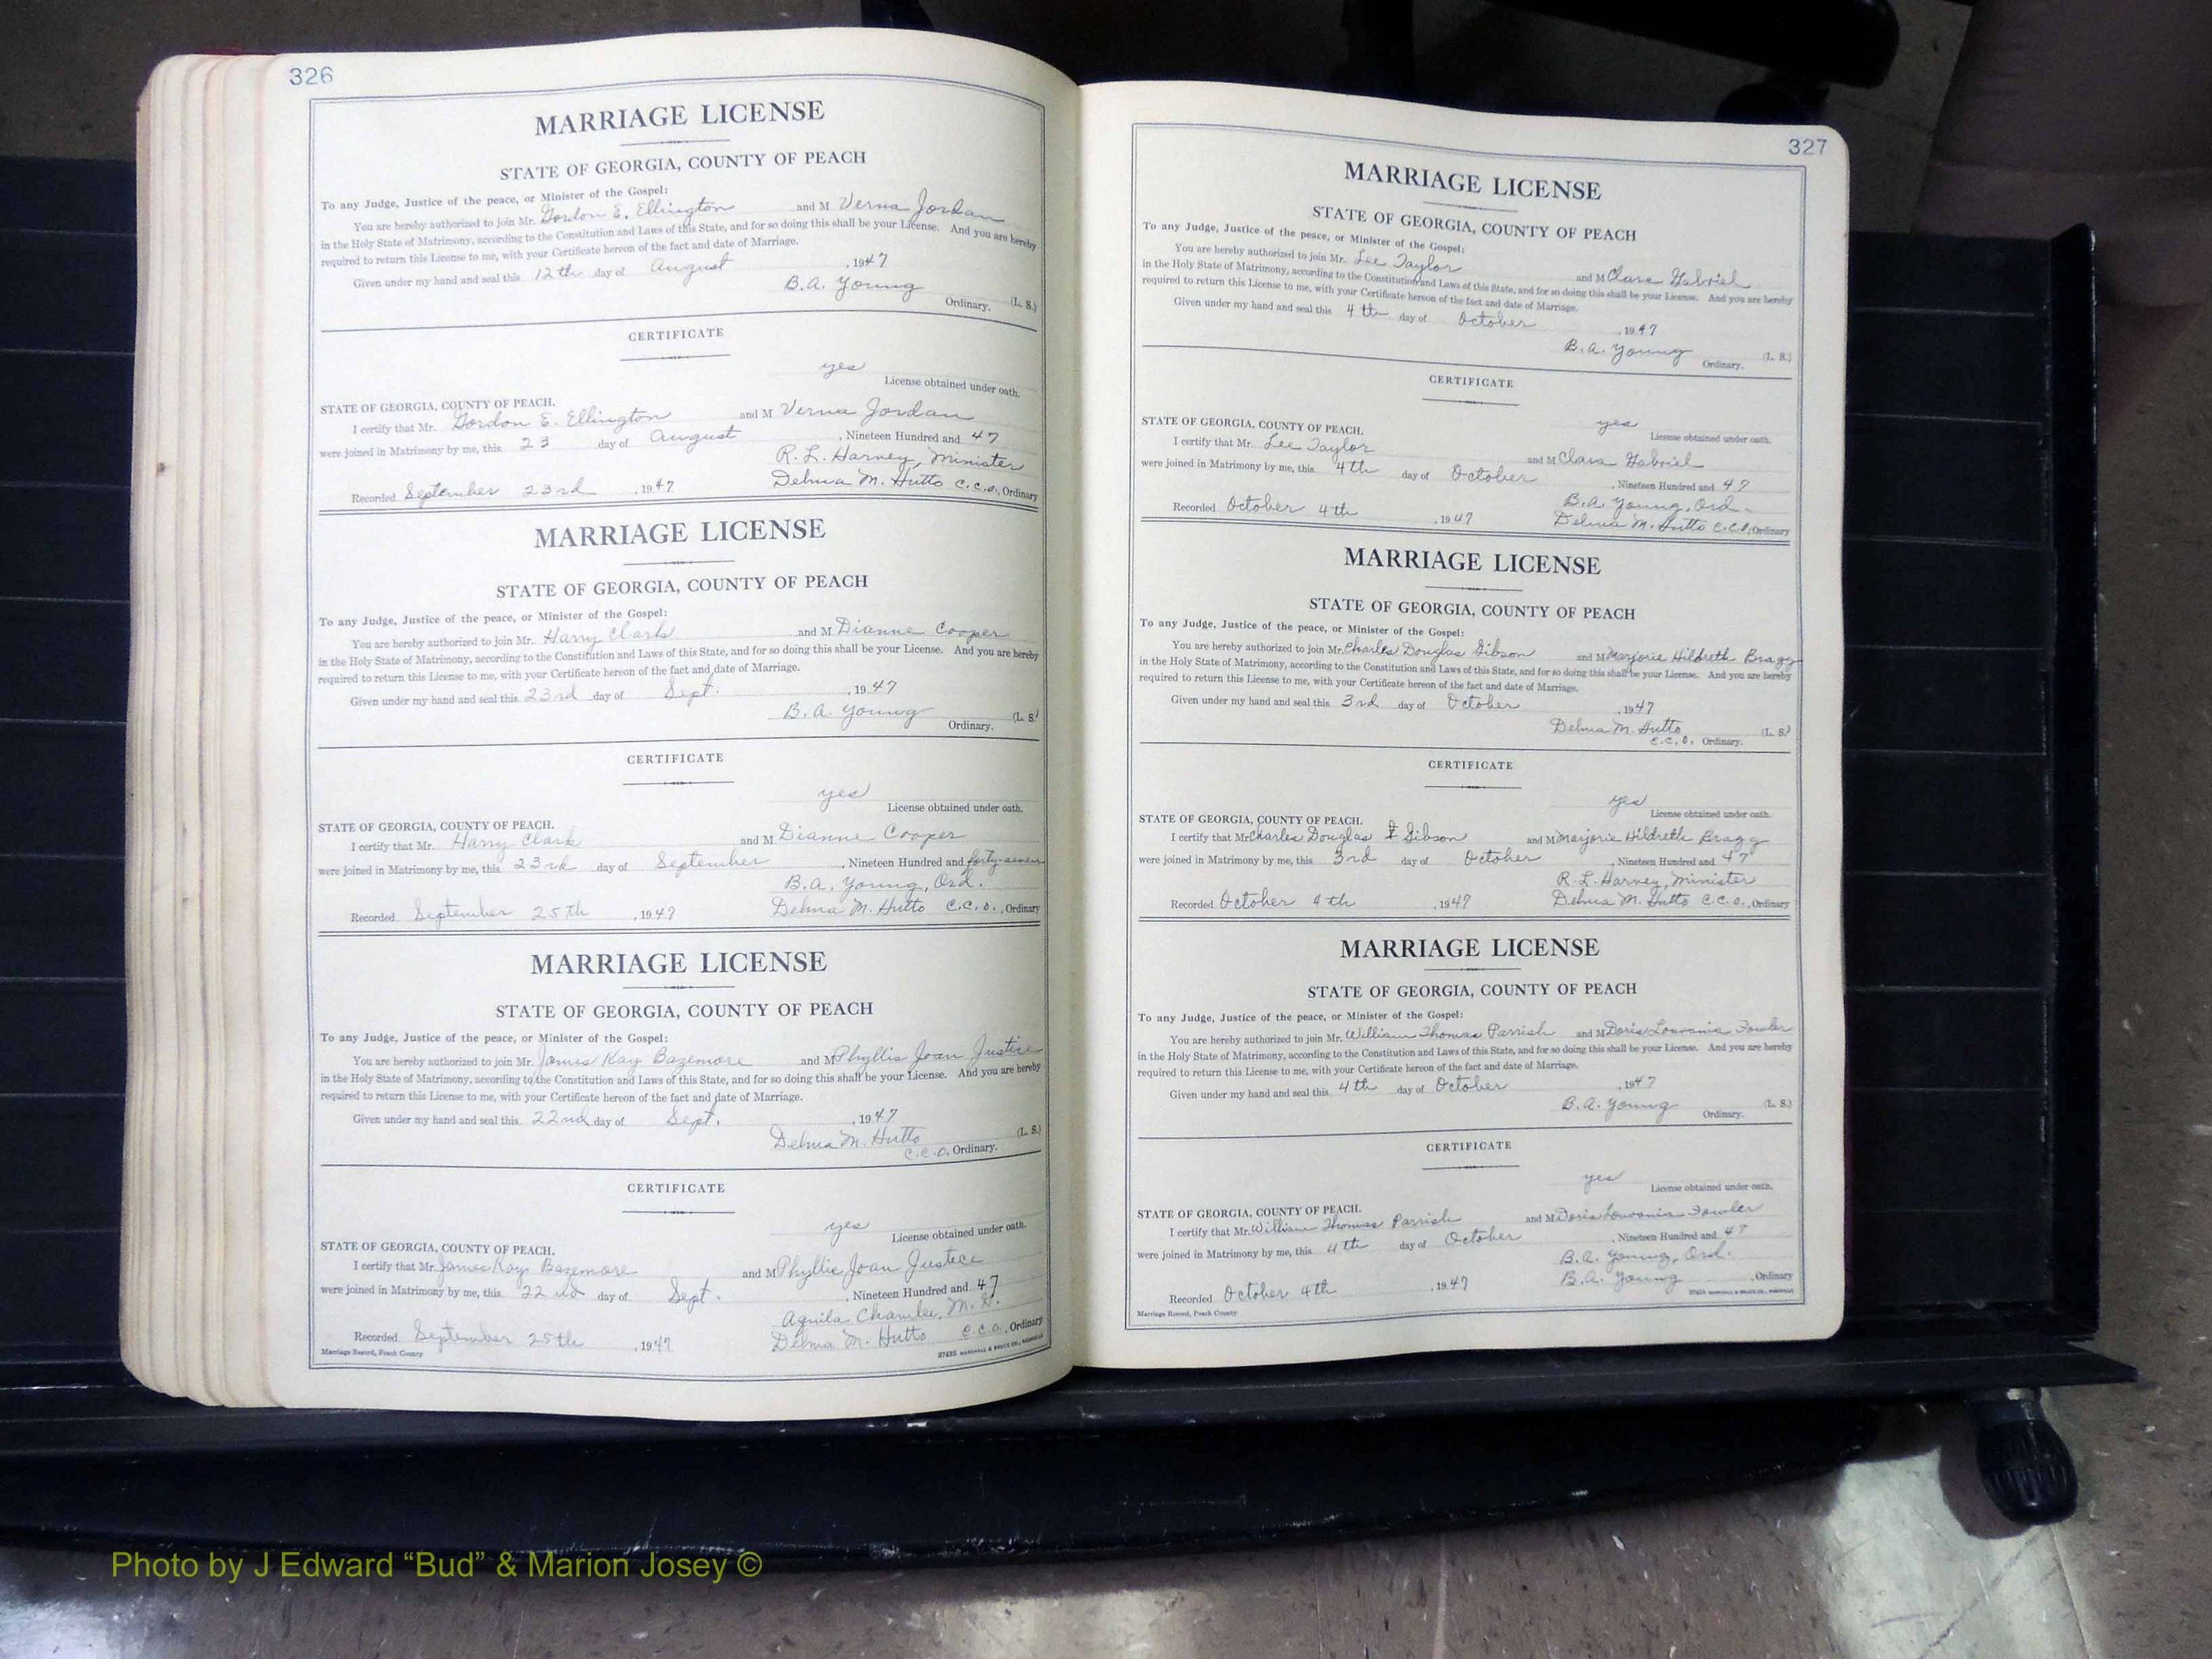 326
MARRIAGE LICENSE
STATE OF GEORGIA, COUNTY OF PEACH
To any Judge, Justice of the peace, or Minister of the Gospel:
You are hereby authorized to join Mr. Gordon E. Ellington and M Verna Jordan
in the Holy State of Matrimony, according to the Constitution and Laws of this State, and for so doing this shall be your License. And you are hereby
required to return this License to me, with your Certificate hereon of the fact and date of Marriage.
Given under my hand and seal this 12th day of August, 1947
B.A. Young
Ordinary. (L. S.)
CERTIFICATE
yes
License obtained under oath.
STATE OF GEORGIA, COUNTY OF PEACH.
I certify that Mr. Gordon E. Ellington and M Verna Jordan
were joined in Matrimony by me, this 23 day of August, Nineteen Hundred and 47
R. L. Harvey, Minister
Recorded September 23rd, 1947 Delma M. Hutto C.C.O., Ordinary
MARRIAGE LICENSE
STATE OF GEORGIA, COUNTY OF PEACH
To any Judge, Justice of the peace, or Minister of the Gospel:
You are hereby authorized to join Mr. Harry Clark and M Dianne Cooper
in the Holy State of Matrimony, according to the Constitution and Laws of this State, and for so doing this shall be your License. And you are hereby
required to return this License to me, with your Certificate hereon of the fact and date of Marriage.
Given under my hand and seal this 23rd day of Sept., 1947
B.A. Young
Ordinary. (L. S.)
CERTIFICATE
yes
License obtained under oath.
STATE OF GEORGIA, COUNTY OF PEACH.
I certify that Mr. Harry Clark and M Dianne Cooper
were joined in Matrimony by me, this 23rd day of September, Nineteen Hundred and forty-seven
B.A. Young, Ord.
Recorded September 25th, 1947 Delma M. Hutto C.C.O., Ordinary
MARRIAGE LICENSE
STATE OF GEORGIA, COUNTY OF PEACH
To any Judge, Justice of the peace, or Minister of the Gospel:
You are hereby authorized to join Mr. James Kay Bazemore and M Phyllis Joan Justice
in the Holy State of Matrimony, according to the Constitution and Laws of this State, and for so doing this shall be your License. And you are hereby
required to return this License to me, with your Certificate hereon of the fact and date of Marriage.
Given under my hand and seal this 22nd day of Sept., 1947
Delma M. Hutto (L. S.)
C.C.O. Ordinary.
CERTIFICATE
yes
License obtained under oath.
STATE OF GEORGIA, COUNTY OF PEACH.
I certify that Mr. James Kay Bazemore and M Phyllis Joan Justice
were joined in Matrimony by me, this 22nd day of Sept., Nineteen Hundred and 47
Aquila Chamlee, M. G.
Recorded September 25th, 1947 Delma M. Hutto C.C.O., Ordinary
Marriage Record, Peach County 37435 MARSHALL & BRUCE CO., NASHVILLE
327
MARRIAGE LICENSE
STATE OF GEORGIA, COUNTY OF PEACH
To any Judge, Justice of the peace, or Minister of the Gospel:
You are hereby authorized to join Mr. Lee Taylor and M Clara Gabriel
in the Holy State of Matrimony, according to the Constitution and Laws of this State, and for so doing this shall be your License. And you are hereby
required to return this License to me, with your Certificate hereon of the fact and date of Marriage.
Given under my hand and seal this 4th day of October, 1947
B.A. Young (L. S.)
Ordinary.
CERTIFICATE
yes
License obtained under oath.
STATE OF GEORGIA, COUNTY OF PEACH.
I certify that Mr. Lee Taylor and M Clara Gabriel
were joined in Matrimony by me, this 4th day of October, Nineteen Hundred and 47
B.A. Young, Ord.
Recorded October 4th, 1947 Delma M. Hutto C.C.O., Ordinary
MARRIAGE LICENSE
STATE OF GEORGIA, COUNTY OF PEACH
To any Judge, Justice of the peace, or Minister of the Gospel:
You are hereby authorized to join Mr. Charles Douglas Gibson and M Marjorie Hildreth Bragg
in the Holy State of Matrimony, according to the Constitution and Laws of this State, and for so doing this shall be your License. And you are hereby
required to return this License to me, with your Certificate hereon of the fact and date of Marriage.
Given under my hand and seal this 3rd day of October, 1947
Delma M. Hutto (L. S.)
C.C.O. Ordinary.
CERTIFICATE
yes
License obtained under oath.
STATE OF GEORGIA, COUNTY OF PEACH.
I certify that Mr. Charles Douglas Gibson and M Marjorie Hildreth Bragg
were joined in Matrimony by me, this 3rd day of October, Nineteen Hundred and 47
R.L. Harvey, Minister
Recorded October 4th, 1947 Delma M. Hutto C.C.O., Ordinary
MARRIAGE LICENSE
STATE OF GEORGIA, COUNTY OF PEACH
To any Judge, Justice of the peace, or Minister of the Gospel:
You are hereby authorized to join Mr. William Thomas Parrish and M Doris Louvania Fowler
in the Holy State of Matrimony, according to the Constitution and Laws of this State, and for so doing this shall be your License. And you are hereby
required to return this License to me, with your Certificate hereon of the fact and date of Marriage.
Given under my hand and seal this 4th day of October, 1947
B.A. Young (L. S.)
Ordinary.
CERTIFICATE
yes
License obtained under oath.
STATE OF GEORGIA, COUNTY OF PEACH.
I certify that Mr. William Thomas Parrish and M Doris Louvania Fowler
were joined in Matrimony by me, this 4th day of October, Nineteen Hundred and 47
B.A. Young, Ord.
Recorded October 4th, 1947 B.A. Young, Ordinary
Marriage Record, Peach County 37435 MARSHALL & BRUCE CO., NASHVILLE
Photo by J Edward “Bud” & Marion Josey ©